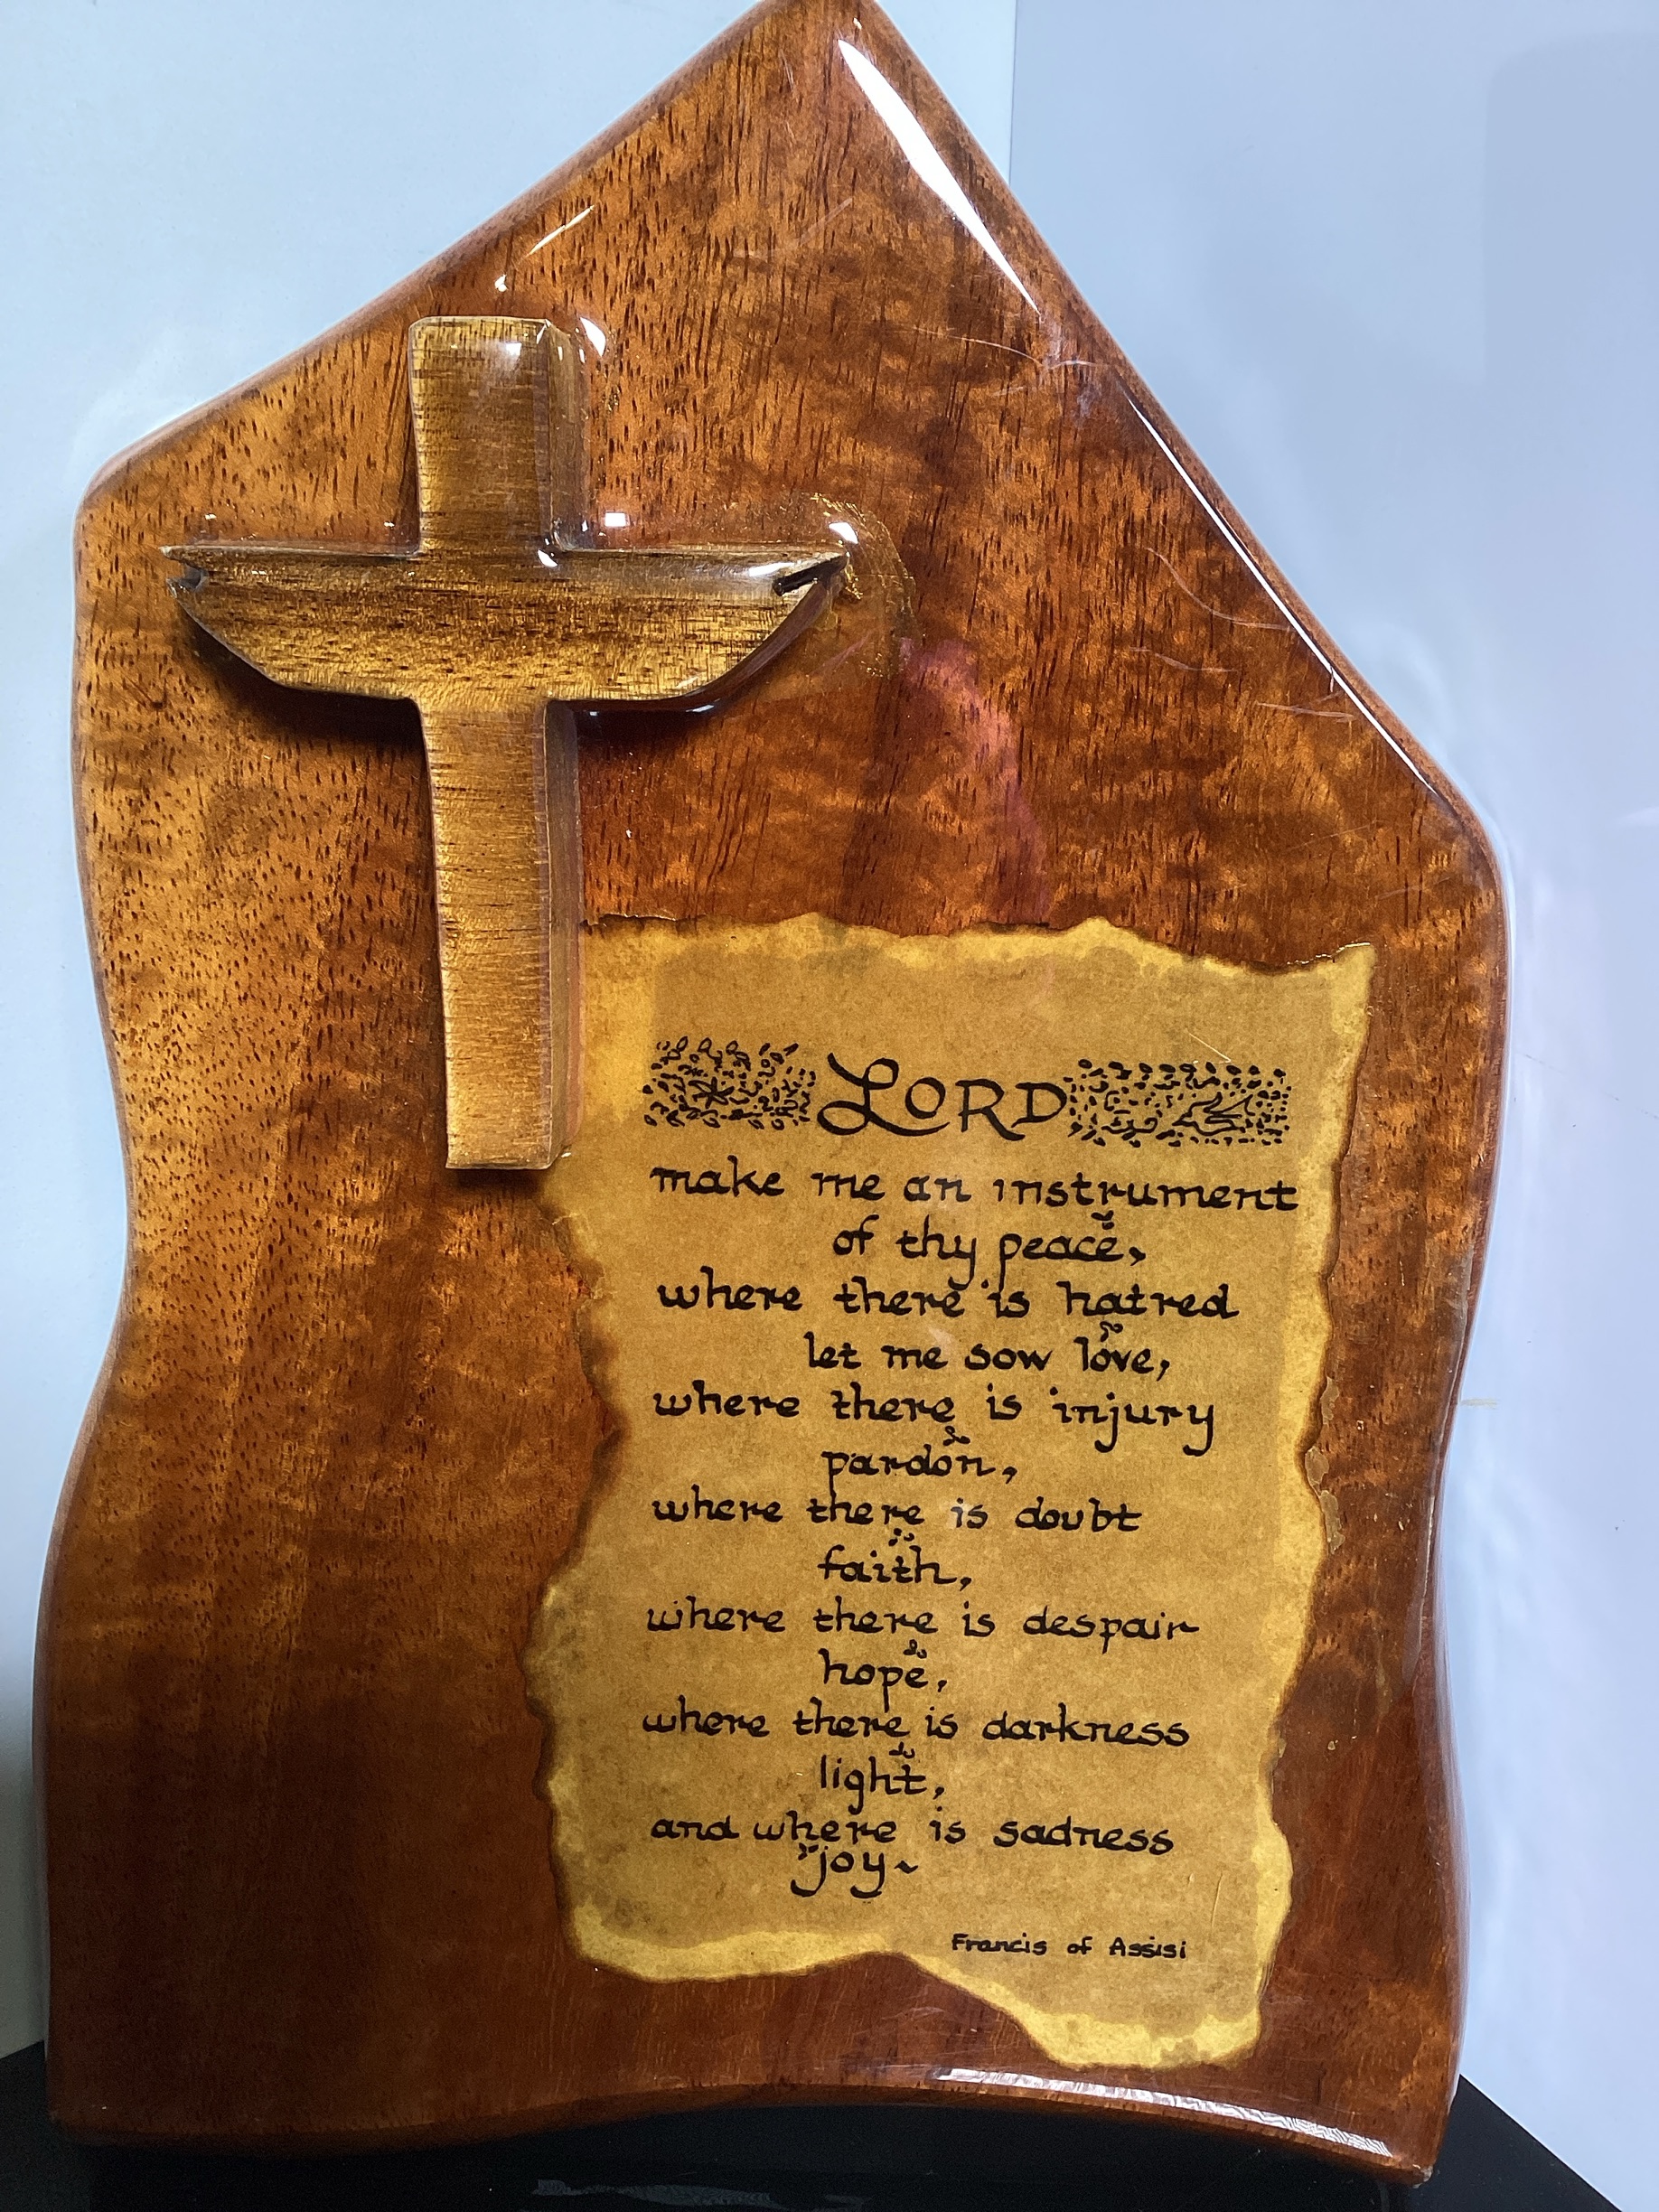 LORD
make me an instrument
of thy peace,
where there is hatred
let me sow love,
where there is injury
pardon,
where there is doubt
faith,
where there is despair
hope,
where there is darkness
light,
and where is sadness
joy~
Francis of Assisi